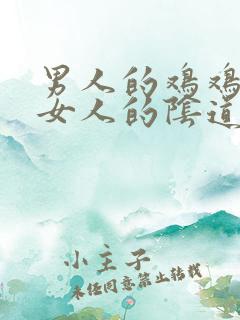 男人的鸡鸡
女人的陰道
小主子
未经同意禁止转载